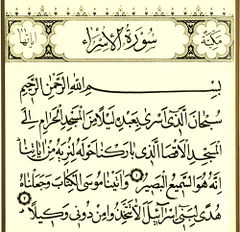 مكية
سورة الإسراء
آياتها
بسم الله الرحمن الرحيم
سبحان الذي أسرى بعبده ليلا من المسجد الحرام إلى
المسجد الأقصا الذي باركنا حوله لنريه من آياتنا
إنه هو السميع البصير وآتينا موسى الكتاب وجعلناه
هدى لبني إسرائيل ألا تتخذوا من دوني وكيلا